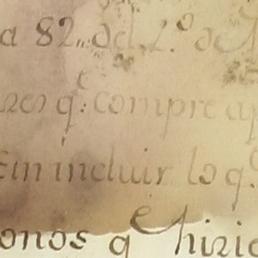 a 82. del L.º de
res q.e compre a
sin incluir lo q.e
onos q.e hizie